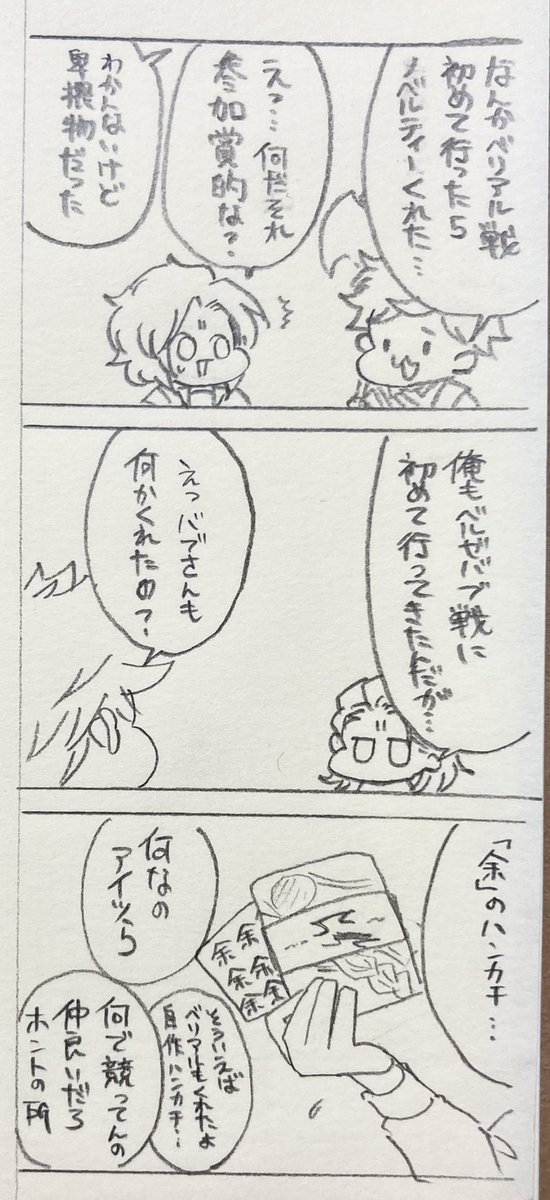 なんかベリアル戦
初めて行ったら
ノベルティーくれた…
えっ…何だそれ
参加賞的な?
わかんないけど
卑猥物だった
俺もベルゼバブ戦に
初めて行ってきたんだが…
えっバブさんも
何かくれたの?
「余」のハンカチ…
余余
余余
余余余
何なの
アイツら
そういえば
ベリアルもくれたよ
自作ハンカチ…
何で競ってんの
仲良いだろ
ホントの所